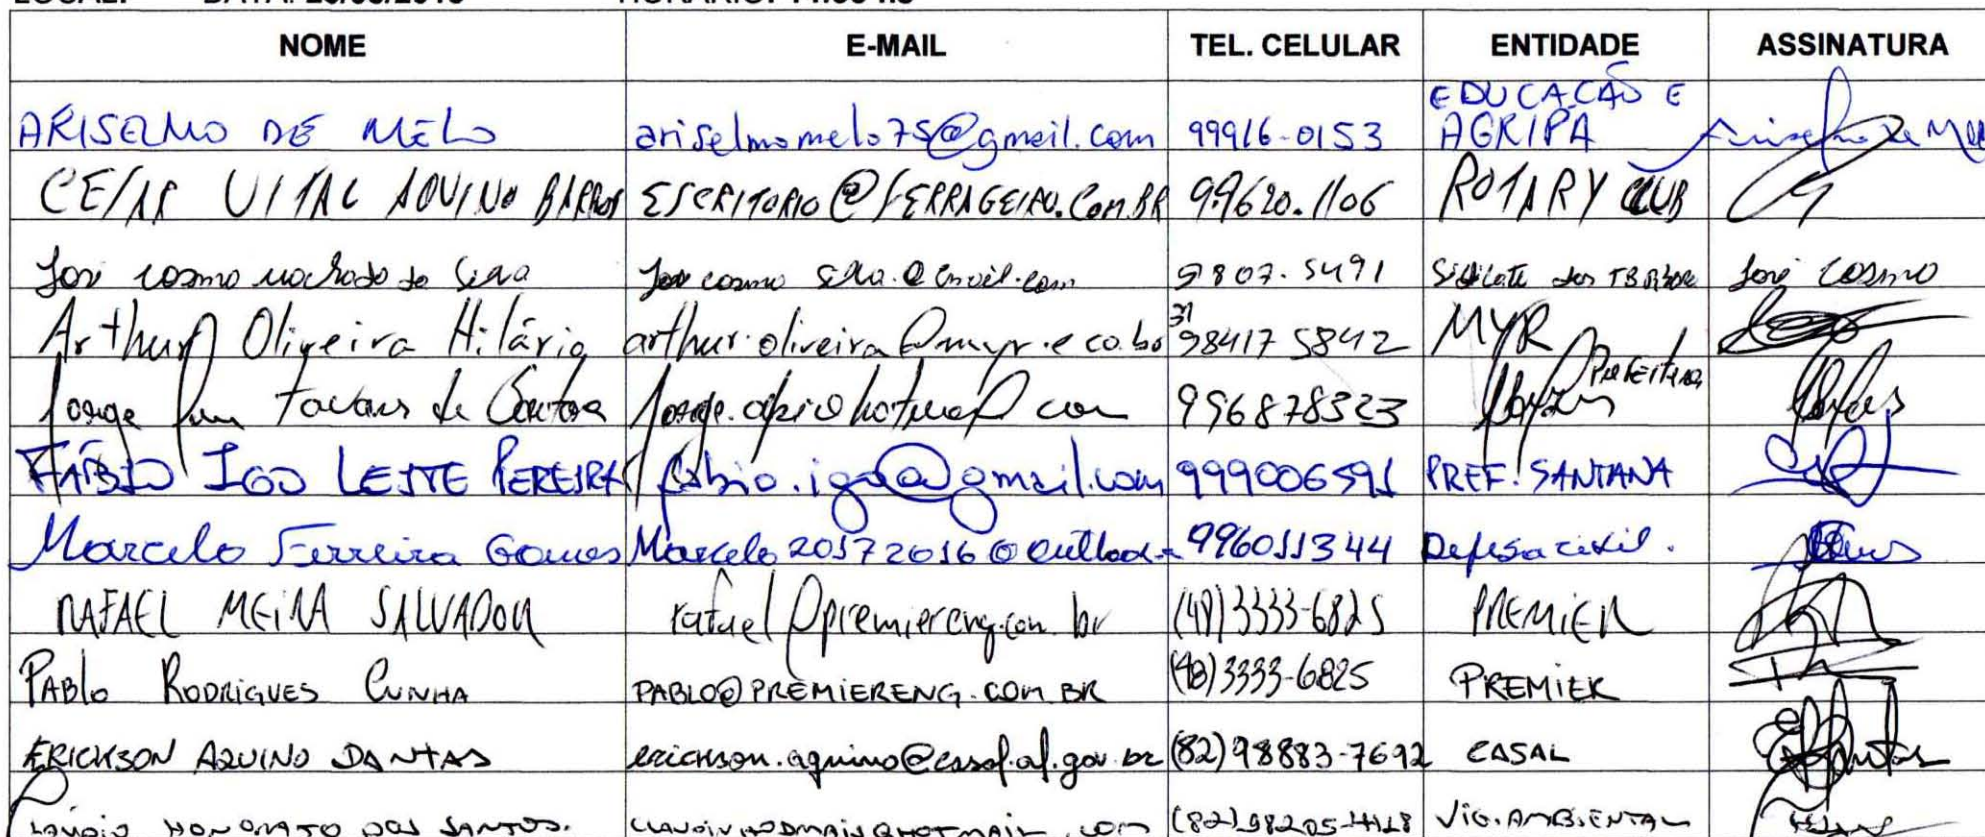 NOME E-MAIL TEL. CELULAR ENTIDADE ASSINATURA
ARISELMO DE MELO ariselmomelo75@gmail.com 99916-0153 EDUCAÇÃO E AGRIPA Ariselmo de Melo
CESAR VITAL AQUINO BARROS ESCRITORIO@FERRAGEIRO.COM.BR 99620.1106 ROTARY CLUB
José cosmo machado da Silva 9807.5491 José Cosmo
Arthur Oliveira Hilário arthur.oliveira@myr.eco.br 31 98417 5842 MYR
Jorge Tavares de 996878323 Prefeitura
FÁBIO IGO LEITE PEREIRA fabio.igo@gmail.com 999006591 PREF. SANTANA
Marcelo Ferreira Gomes Marcelo20172016@outlook 996011344 Defesa civil.
RAFAEL MEIRA SALVADOR rafael@premiereng.com.br (48)3333-6825 PREMIER
PABLO RODRIGUES CUNHA PABLO@PREMIERENG.COM.BR (48)3333-6825 PREMIER
ERICKSON AQUINO DANTAS erickson.aquino@casal.al.gov.br (82)98883-7692 CASAL
HONORATO DOS SANTOS. VIG. AMBIENTAL